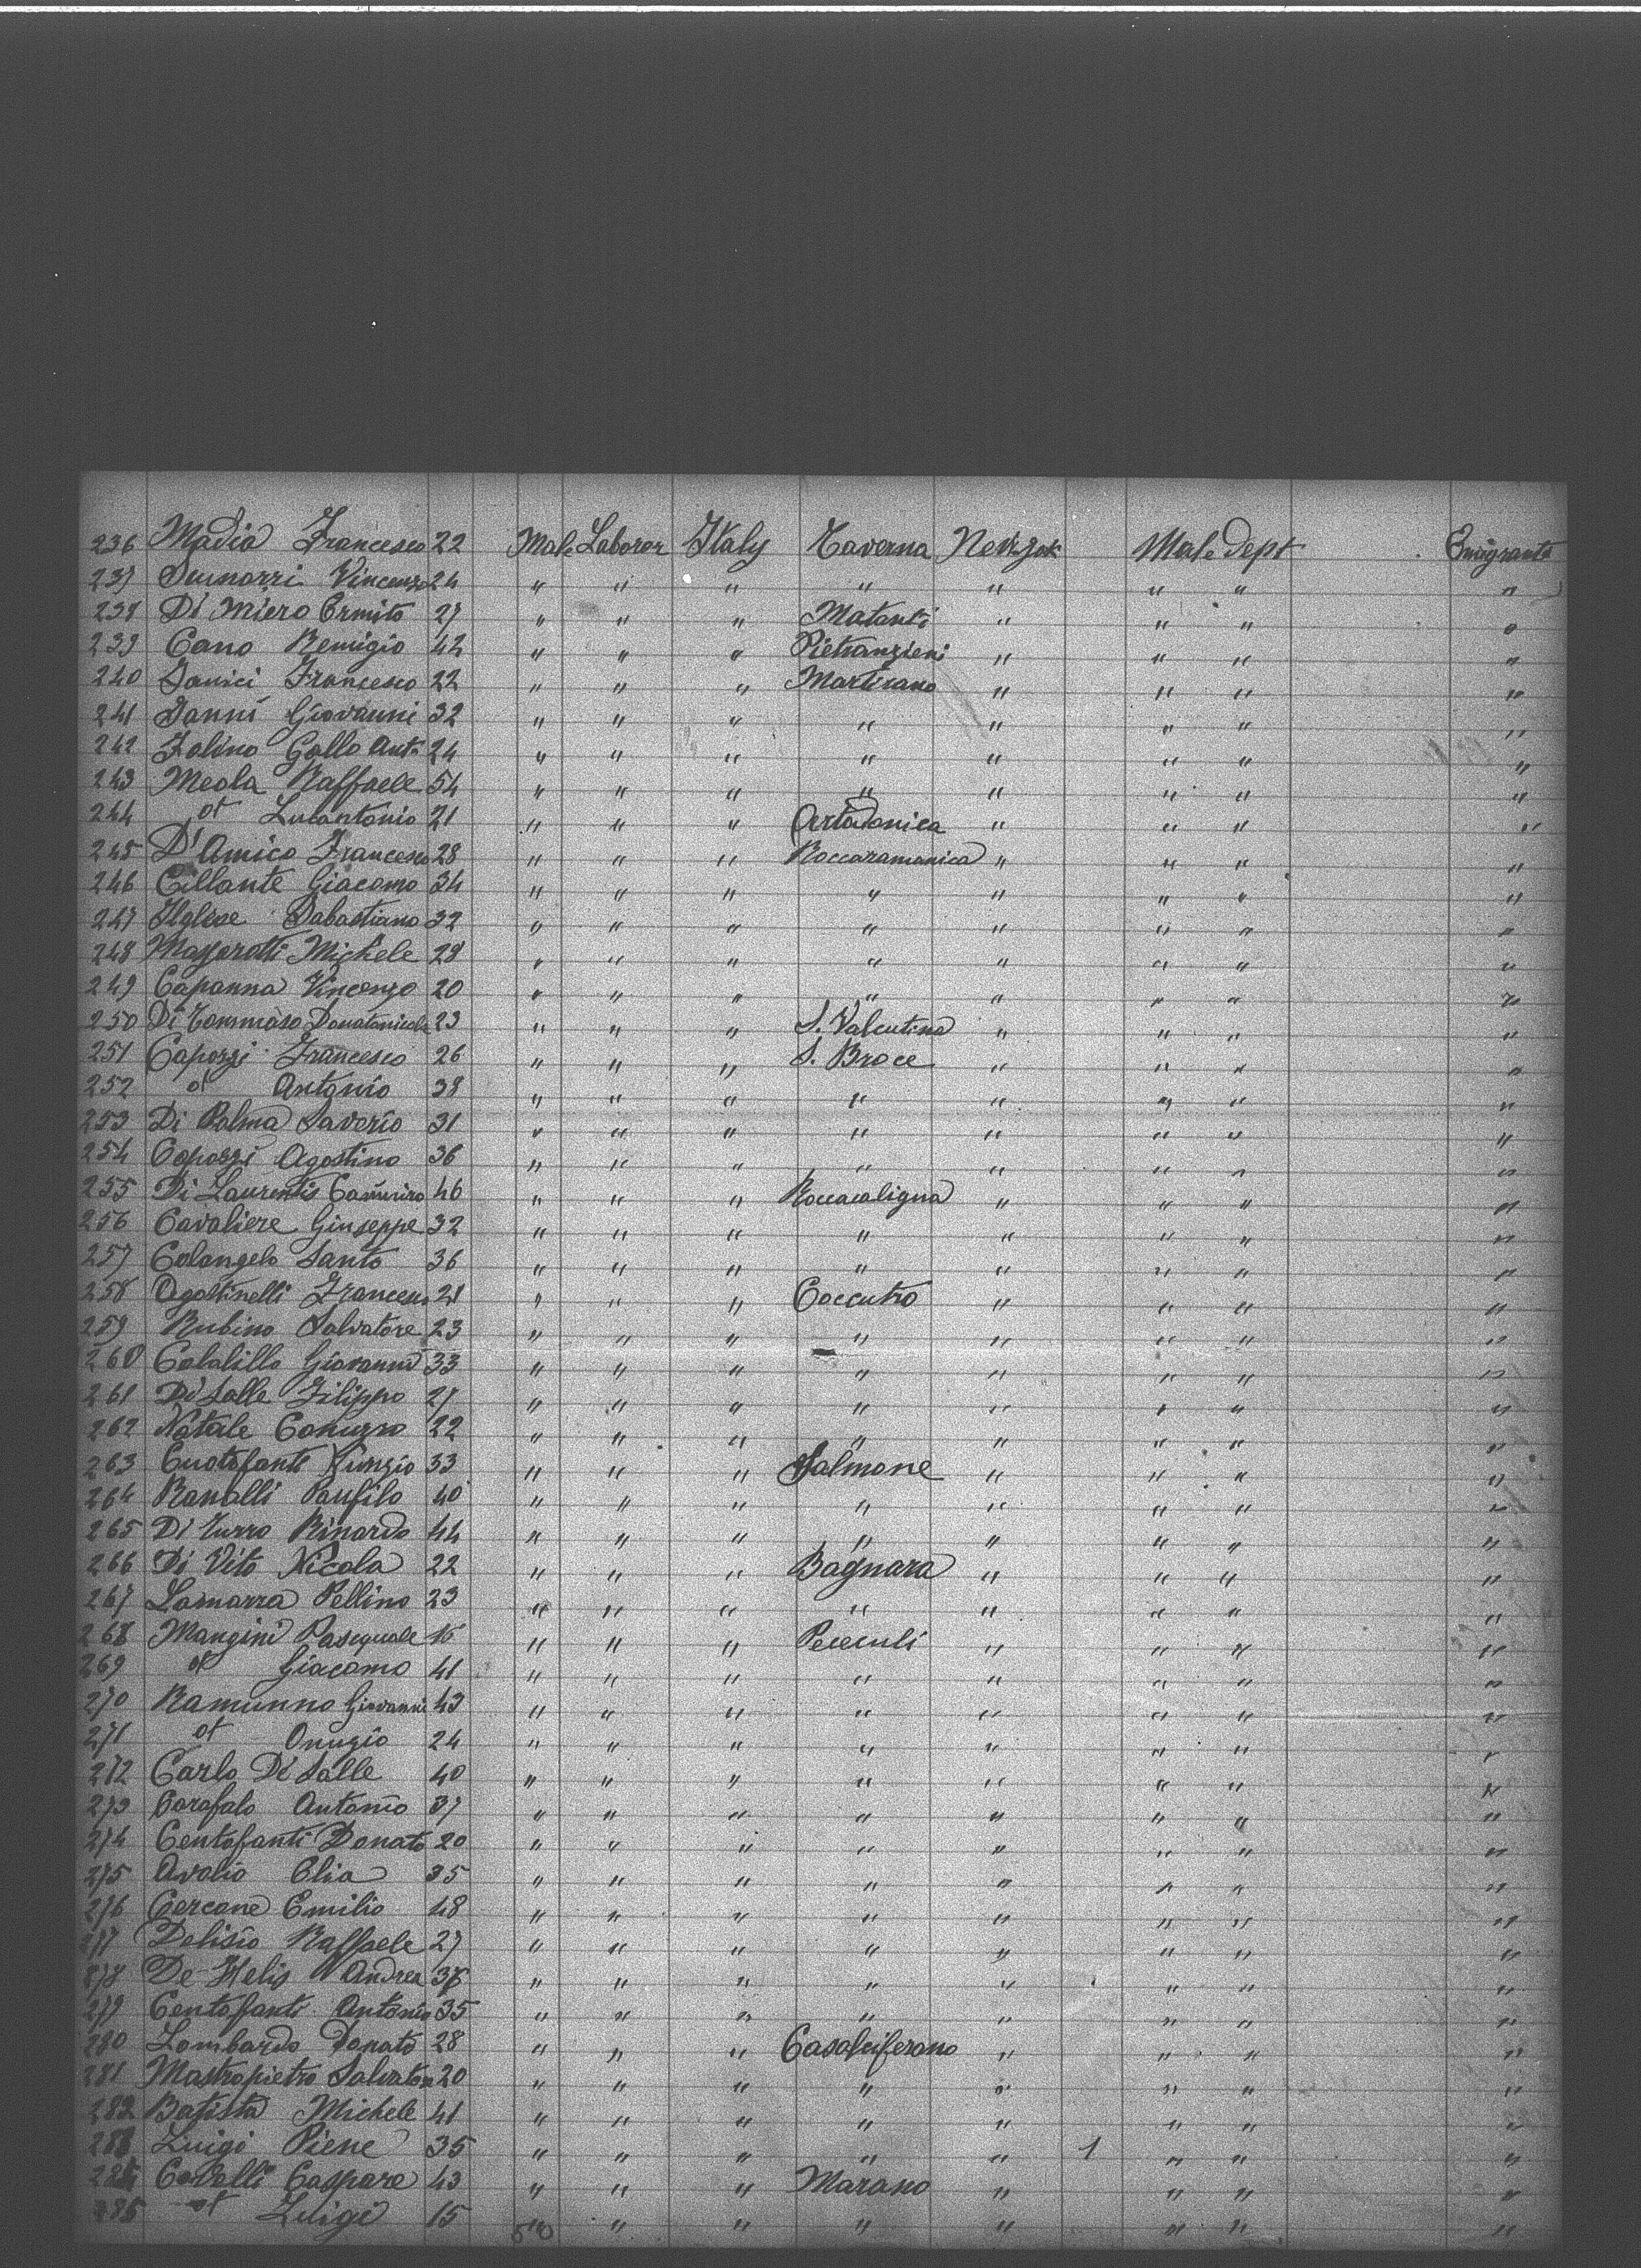 236 Madia Francesco 22 Male Laborer Italy Taverna New York Male dept Emigrants
237 Vincenzo 24 " " " " " " " "
238 Di Miero Ermito 27 " " " Matanti " " " "
239 Cano Remigio 42 " " " Pietranzieri " " " "
240 Danici Francesco 22 " " " Martirano " " " "
241 Danni Giovanni 32 " " " " " " " "
242 Folino Gallo Anto 24 " " " " " " " "
243 Meola Raffaele 54 " " " " " " " "
244 ot Lucantonio 21 " " " " " " "
245 D'Amico Francesco 28 " " " Roccaramanica " " " "
246 Cillante Giacomo 34 " " " " " " " "
247 Sabastiano 32 " " " " " " " "
248 Masserotti Michele 28 " " " " " " " "
249 Capanna Vincenzo 20 " " " " " " " "
250 Di Tommaso Donatonicola 23 " " " S. Valentino " " " "
251 Capozzi Francesco 26 " " " S. Broce " " " "
252 ot Antonio 38 " " " " " " " "
253 Di Palma Saverio 31 " " " " " " " "
254 Capozzi Agostino 36 " " " " " " " "
255 Di Laurentis Camuriro 46 " " " Roccacaligna " " " "
256 Cavaliere Giuseppe 32 " " " " " " " "
257 Colangelo Santo 36 " " " " " " " "
258 Agostinelli Francesco 21 " " " Coccutro " " " "
259 Rubino Salvatore 23 " " " " " " " "
260 Calalillo Giovanni 33 " " " " " " " "
261 Di Salle Filippo 27 " " " " " " " "
262 Natale 22 " " " " " " " "
263 33 " " " Salmone " " " "
264 Ranalli Panfilo 40 " " " " " " " "
265 Di Turro Rinardo 44 " " " " " " " "
266 Di Vito Nicola 22 " " " Bagnara " " " "
267 Lamarra Pellino 23 " " " " " " " "
268 Mangini Pasquale " " " Pececuli " " " "
269 ot Giacomo 41 " " " " " " " "
270 Ramunno Giovanni 43 " " " " " " " "
271 ot Onugio 24 " " " " " " " "
272 Carlo Di Salle 40 " " " " " " " "
273 Corofalo Antonio 37 " " " " " " " "
274 Centofanti Donato 20 " " " " " " " "
275 Avolio Elia 35 " " " " " " " "
276 Cercone Emilio 48 " " " " " " " "
277 Delisio Raffaele 27 " " " " " " " "
278 De Melis Andrea 36 " " " " " " " "
279 Centofanti Antonio 35 " " " " " " " "
280 Lombardo Donato 28 " " " Casalciferano " " " "
281 Mastropietro Salvatore 20 " " " " " " " "
282 Batista Michele 41 " " " " " " " "
283 Luigi Piene 35 " " " " " 1 " " "
284 Corelli Gaspare 43 " " " Marano " " " "
285 ot Luigi 15 " " " " " " " "